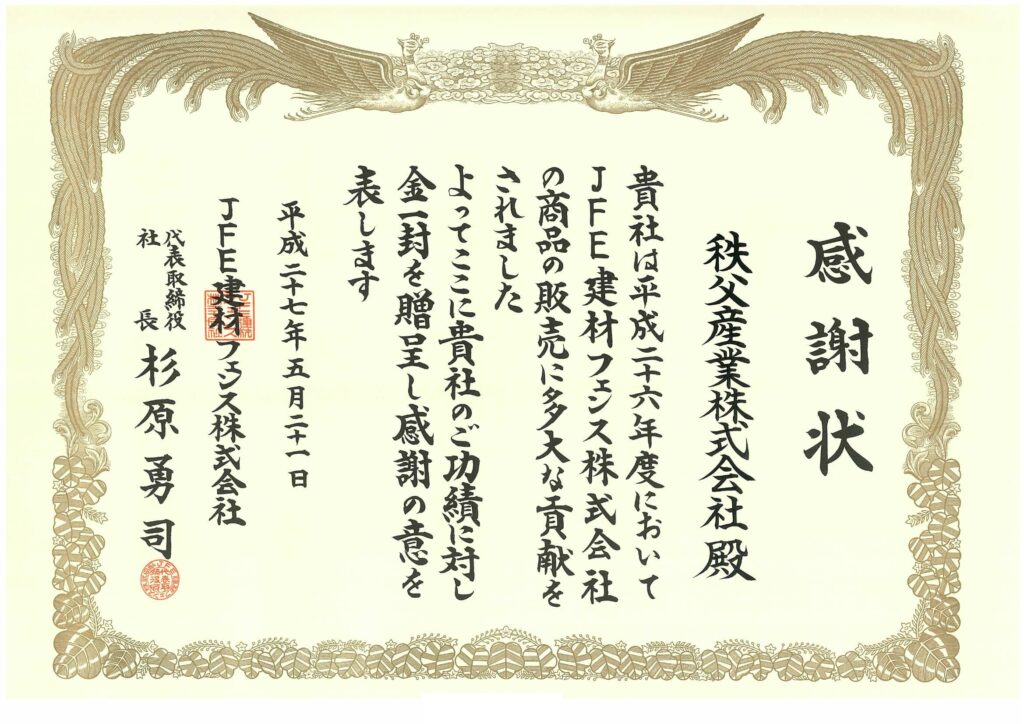 感謝状
秩父産業株式会社殿
貴社は平成二十六年度において
JFE建材フェンス株式会社
の商品の販売に多大な貢献を
されました
よってここに貴社のご功績に対し
金一封を贈呈し感謝の意を
表します
平成二十七年五月二十一日
JFE建材フェンス株式会社
代表取締役
社長
杉原勇司